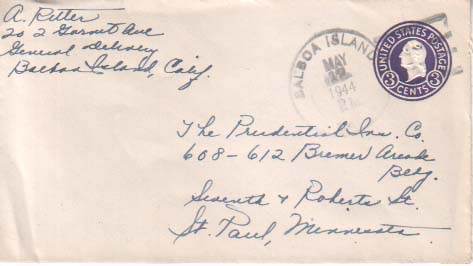 A. Ritter
202 Garnet Ave
General Delivery
Balboa Island, Calif.
BALBOA ISLAND
MAY
12
1944
UNITED STATES POSTAGE
3 CENTS 3
The Prudential Ins. Co.
608-612 Bremer Arcade
Bldg.
Seventh & Roberts St.
St. Paul, Minnesota